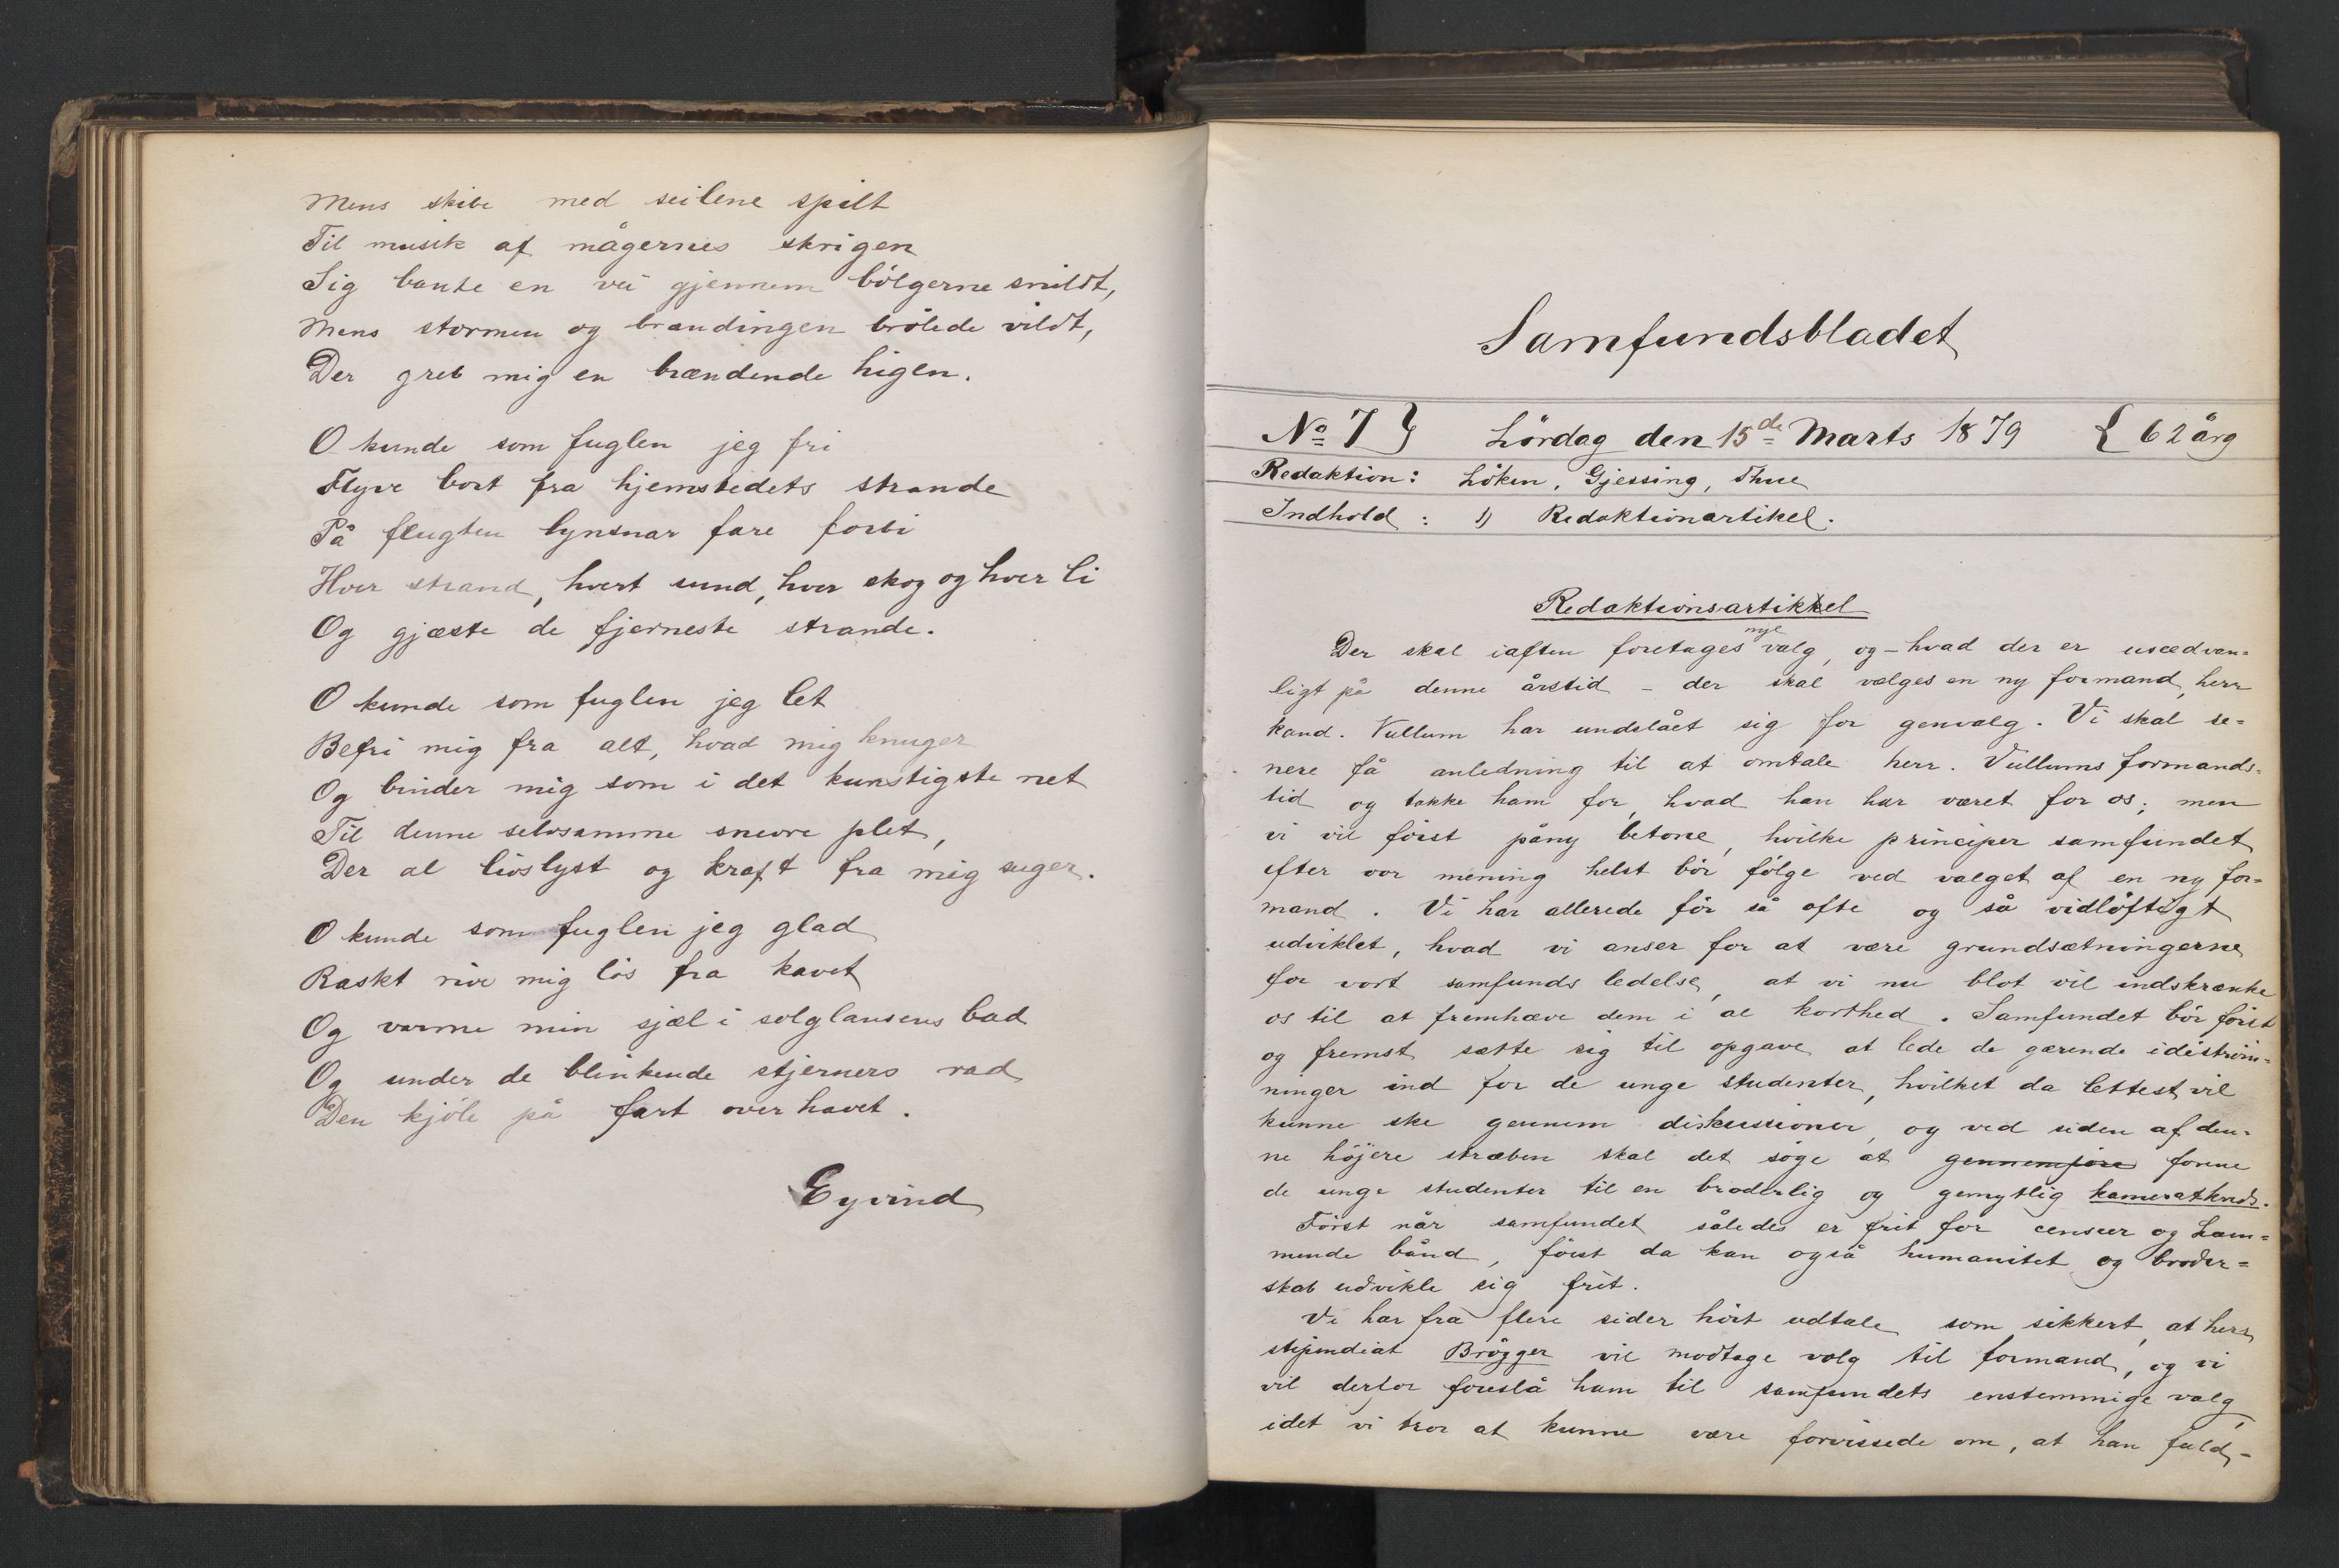 Mens skibe med seilene spilt
Til musik af mågernes skrigen
Sig bante en vei gjennem bölgerne snildt,
Mens stormen og brændingen brölede vildt,
Der greb mig en brændende higen.
O kunde som fuglen jeg fri
Flyve bort fra hjemstedets strande
På flugten lynsnar fare forbi
Hver strand, hvert sund, hver skog og hver li
Og gjæste de fjerneste strande.
O kunde som fuglen jeg let
Befri mig fra alt, hvad mig knuger
Og binder mig som i det kunstigste net
Til denne selvsamme snevre plet,
Der al livslyst og kraft fra mig suger.
O kunde som fuglen jeg glad
Raskt rive mig lös fra kavet
Og varme min sjæl i solglansens bad
Og under de blinkende stjerners rad
Den kjöle på fart over havet.
Eyvind
Samfundsbladet
No 7 } Lördag den 15de Marts 1879 { 62 årg
Redaktion: Löken, Gjessing, Thue
Indhold : 1) Redaktionartikel.
Redaktionsartikkel
Der skal iaften foretages nye valg, og – hvad der er usædvan=
ligt på denne årstid – der skal vælges en ny formand, herr
kand. Vullum har undslået sig for genvalg. Vi skal se=
nere få anledning til at omtale herr. Vullums formands=
tid og takke ham for, hvad han har været for os; men
vi vil först påny betone, hvilke principer samfundet
efter vor mening helst bör fölge ved valget af en ny for=
mand. Vi har allerede för så ofte og så vidlöftigt
udviklet, hvad vi anser for at være grundsætningerne
for vort samfunds ledelse, at vi nu blot vil indskrænke
os til at fremhæve dem i al korthed. Samfundet bör först
og fremst sætte sig til opgave at lede de gærende idéström=
ninger ind for de unge studenter, hvilket da lettest vil
kunne ske gennem diskussioner, og ved siden af den=
ne höjere stræben skal det söge at gennemföre forme
de unge studenter til en broderlig og gemytlig kameratkreds.
Först når samfundet således er frit for censur og hæm=
mende bånd, först da kan også humanitet og broder=
skab udvikle sig frit.
Vi har fra flere sider hört udtale som sikkert, at herr
stipendiat Brögger vil modtage valg til formand, og vi
vil derfor foreslå ham til samfundets enstemmige valg,
idet vi tror at kunne være forvissede om, at han fuld-